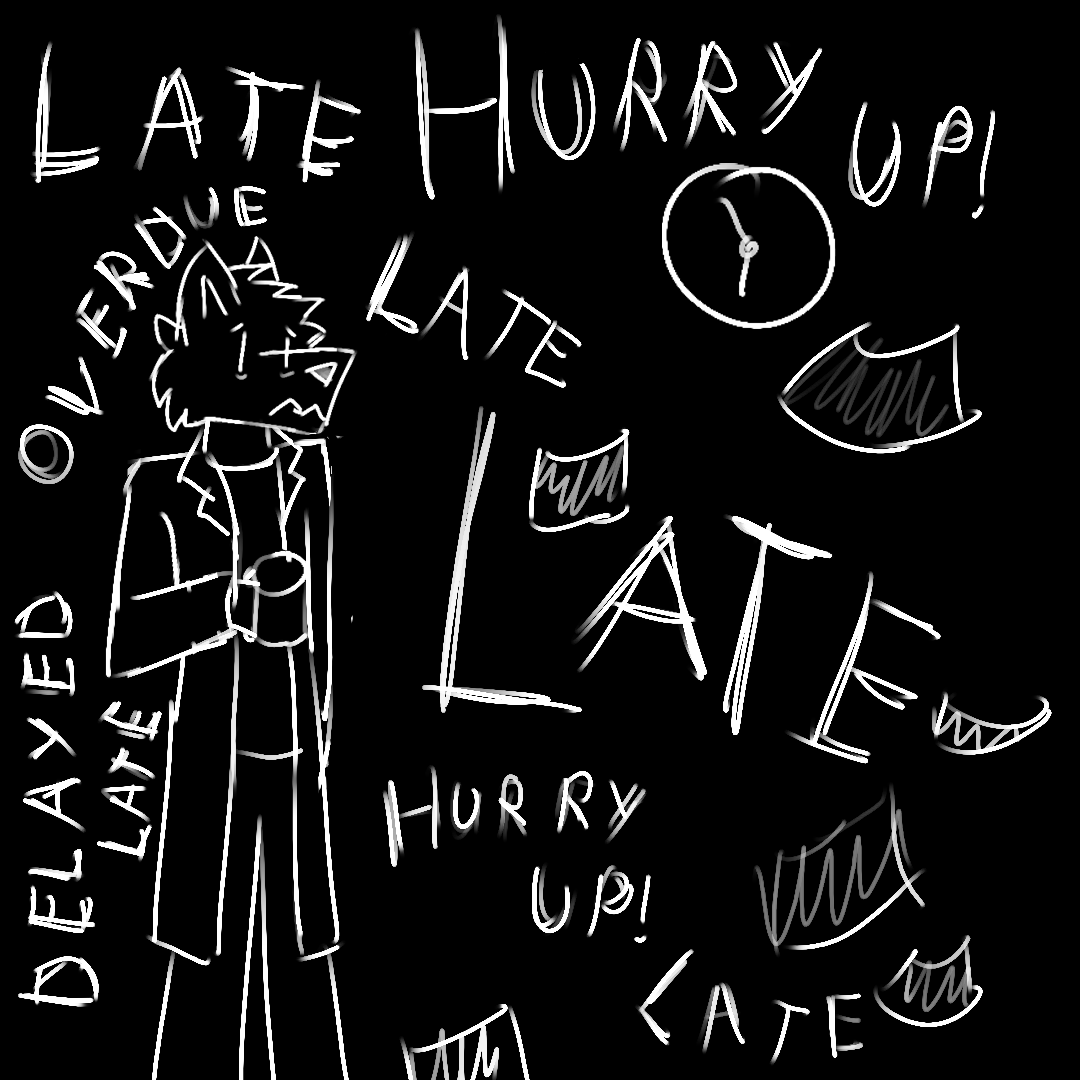 LATE HURRY UP!
OVERDUE
LATE
LATE
DELAYED
LATE
HURRY
UP!
LATE